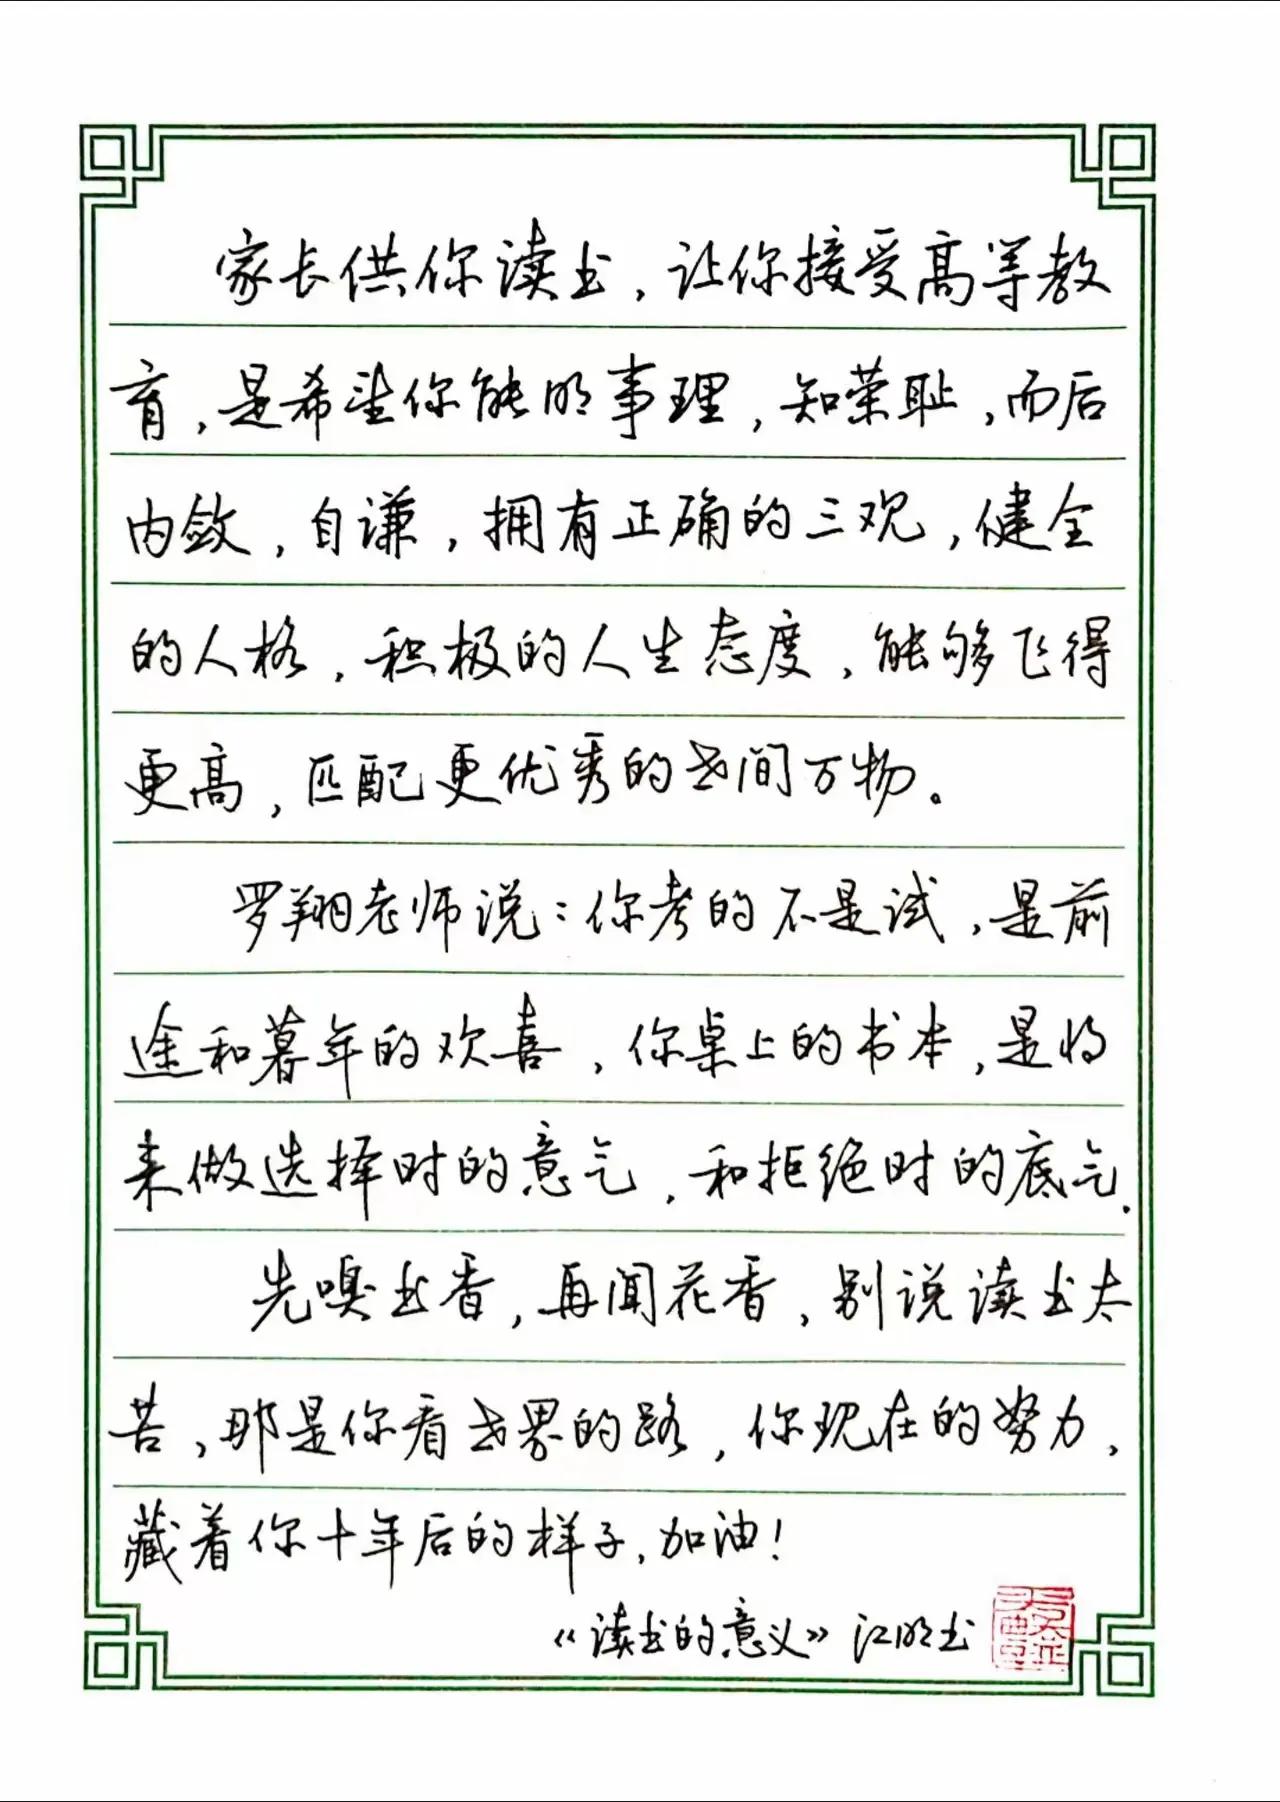 家长供你读书，让你接受高等教
育，是希望你能明事理，知荣耻，而后
内敛，自谦，拥有正确的三观，健全
的人格，积极的人生态度，能够飞得
更高，匹配更优秀的世间万物。
罗翔老师说：你考的不是试，是前
途和暮年的欢喜，你桌上的书本，是将
来做选择时的意气，和拒绝时的底气.
先嗅书香，再闻花香，别说读书太
苦，那是你看世界的路，你现在的努力，
藏着你十年后的样子，加油！
《读书的意义》江明书